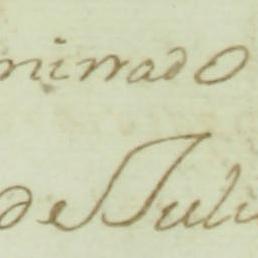 nirrado
de Juli